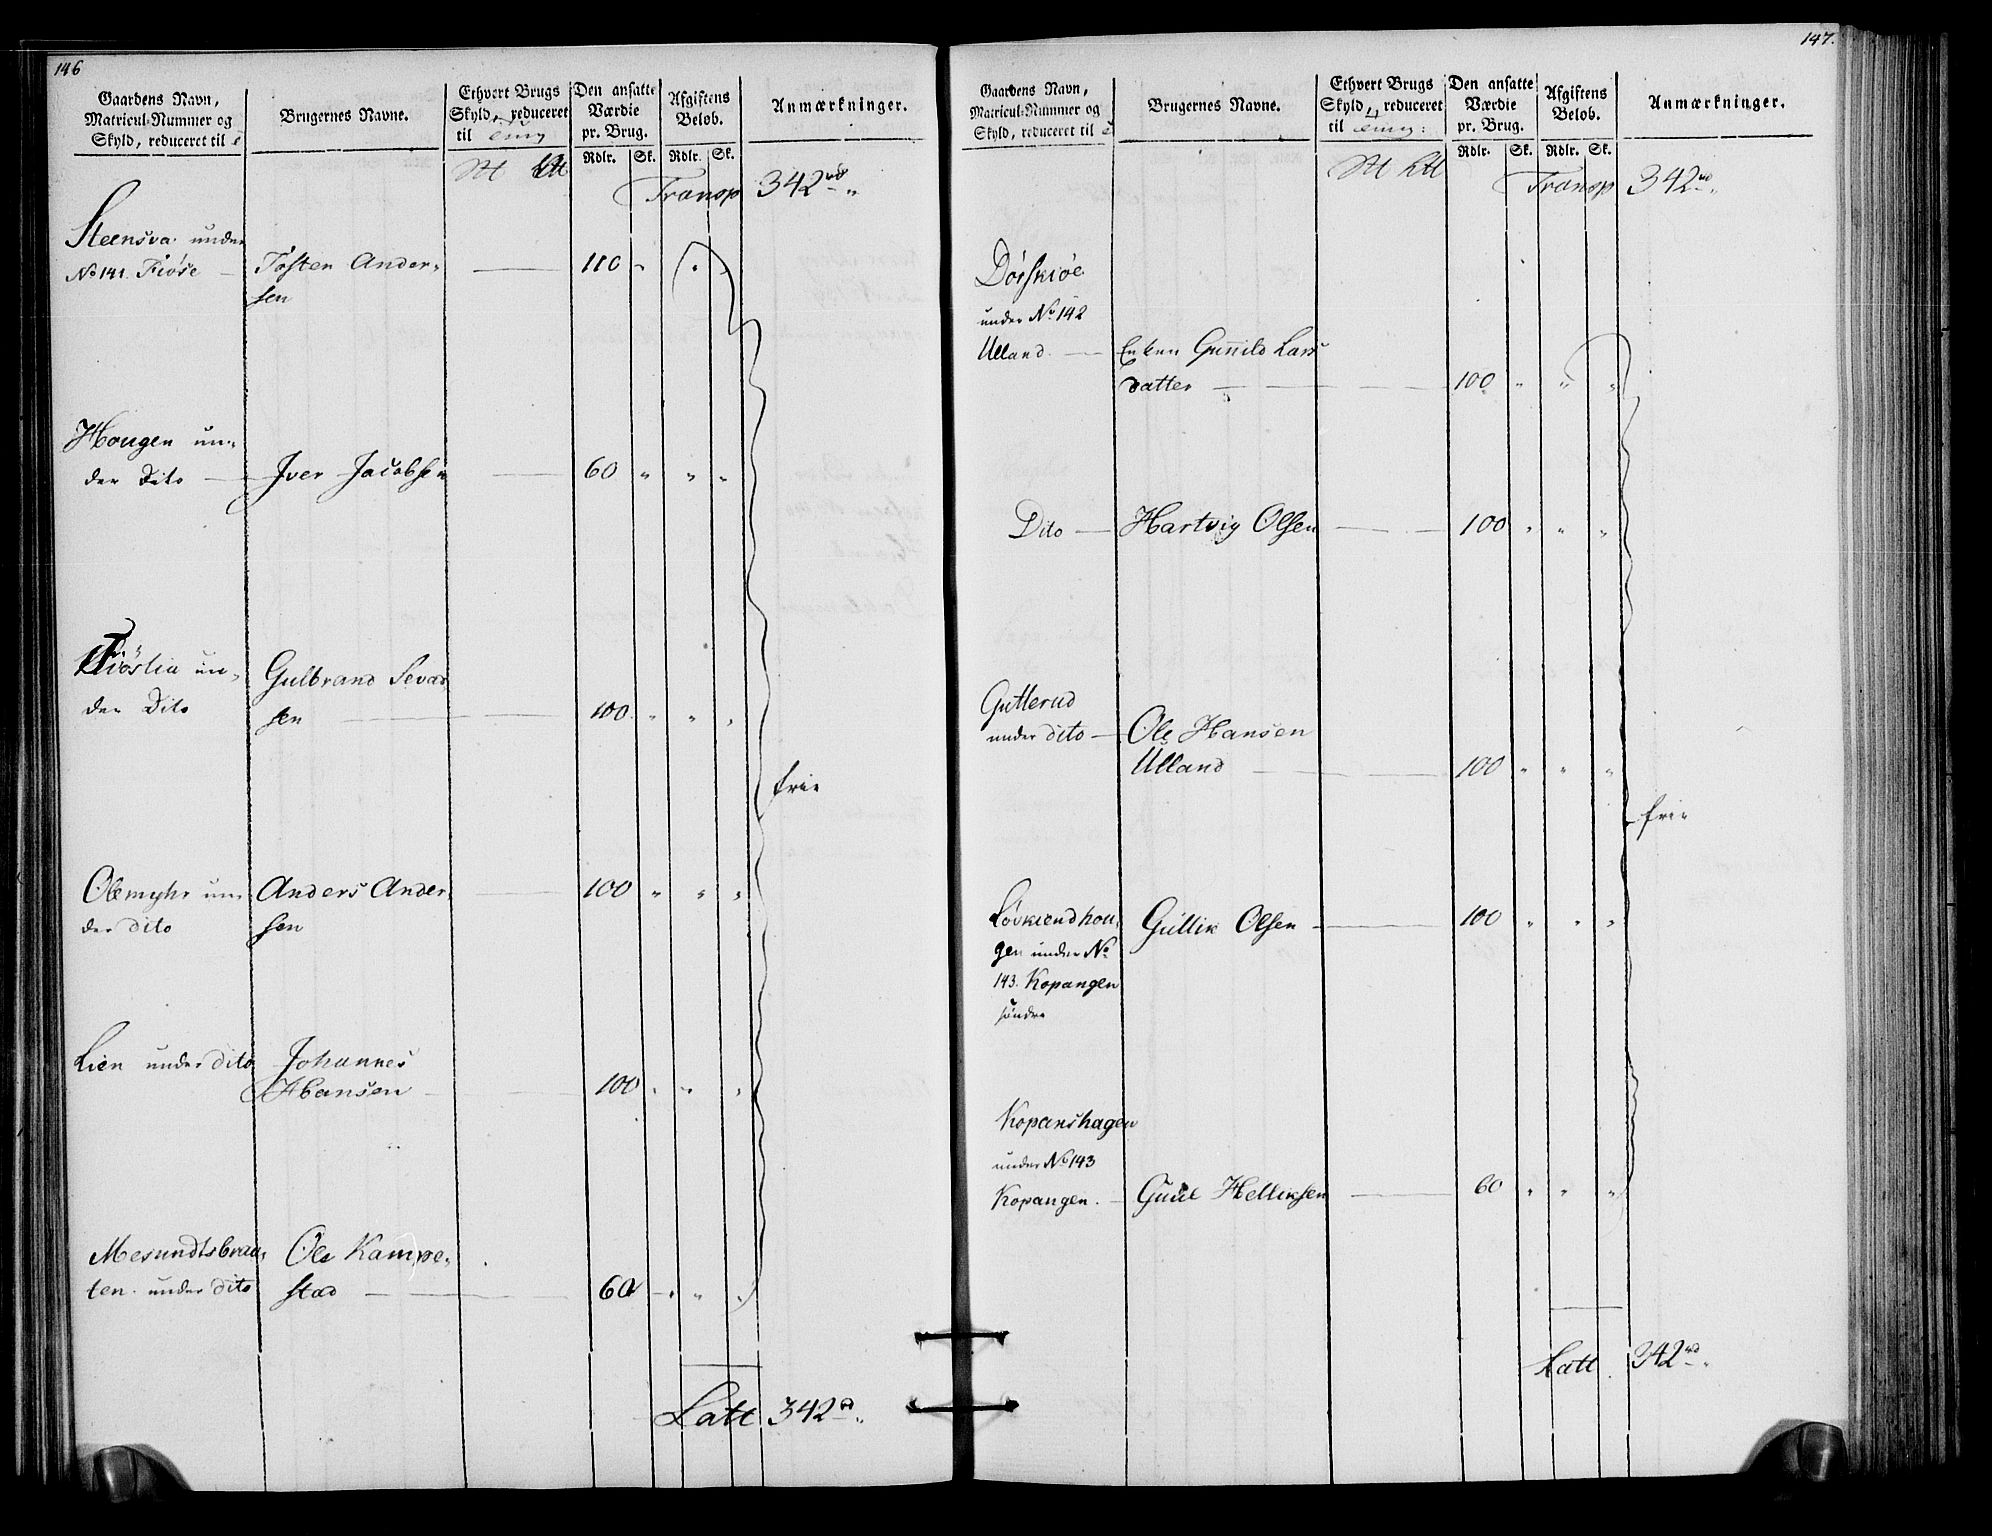 146
Gaardens Navn,
Matricul-Nummer og
Skyld, reduceret til
Brugernes Navne.
Ethvert Brugs
Skyld, reduceret
til
Den ansatte
Værdie
pr. Brug.
Rdlr. Sk.
Afgiftens
Beløb.
Rdlr. Sk.
Anmærkninger.
Transp 342 rd „
Steensva under
No 141. Fiøse — Tosten Ander-
sen — 110 „ „ „
Hougen un-
der Dito — Iver Jacobsen — 60 „ „ „
Fiøslia un-
der Dito
Gulbrand
sen — 100 „ „ „
frie
Olemyhr un-
der dito
Anders Ander-
sen — 100 „ „ „
Lien under dito Johannes
Hansen — 100 „ „ „
Mesundtsbraa-
ten under dito
Ole Kampe-
stad — 60 „ „ „
Latt 342 rd „
147.
Gaardens Navn,
Matricul-Nummer og
Skyld, reduceret til
Brugernes Navne.
Ethvert Brugs
Skyld, reduceret
til
Den ansatte
Værdie
pr. Brug.
Rdlr. Sk.
Afgiftens
Beløb.
Rdlr. Sk.
Anmærkninger.
Transp 342 rd „
under No 142
Ulland — Enken Gunild Lars
datter — 100 „ „ „
Dito — Hartvig Olsen — 100 „ „ „
Gutterud
under dito — Ole Hansen
Ulland — 100 „ „ „
frie
Løvkiendhou-
gen under No
143. Kopangen
søndre
Gullik Olsen — 100 „ „ „
Kopanshagen
under No 143
Kopangen. — Guul Helliksen — 60 „ „ „
Latt 342 rd „